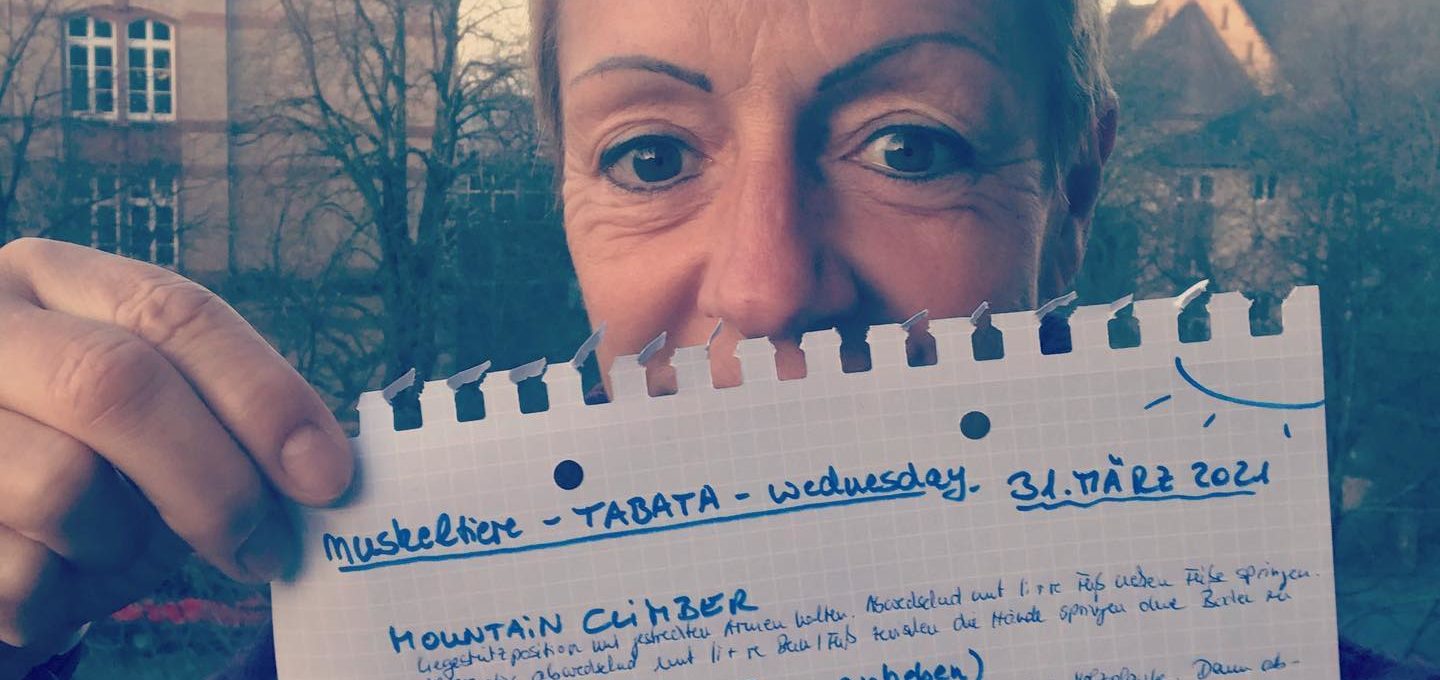 Muskeltiere - TABATA - Wednesday. 31. MÄRZ 2021
MOUNTAIN CLIMBER
Liegestützposition mit gestreckten Armen halten. Abwechselnd mit li + re Fuß neben Füße springen.
abwechselnd mit li + re Bein/Fuß zwischen die Hände springen ohne
anheben)
Dann ab-